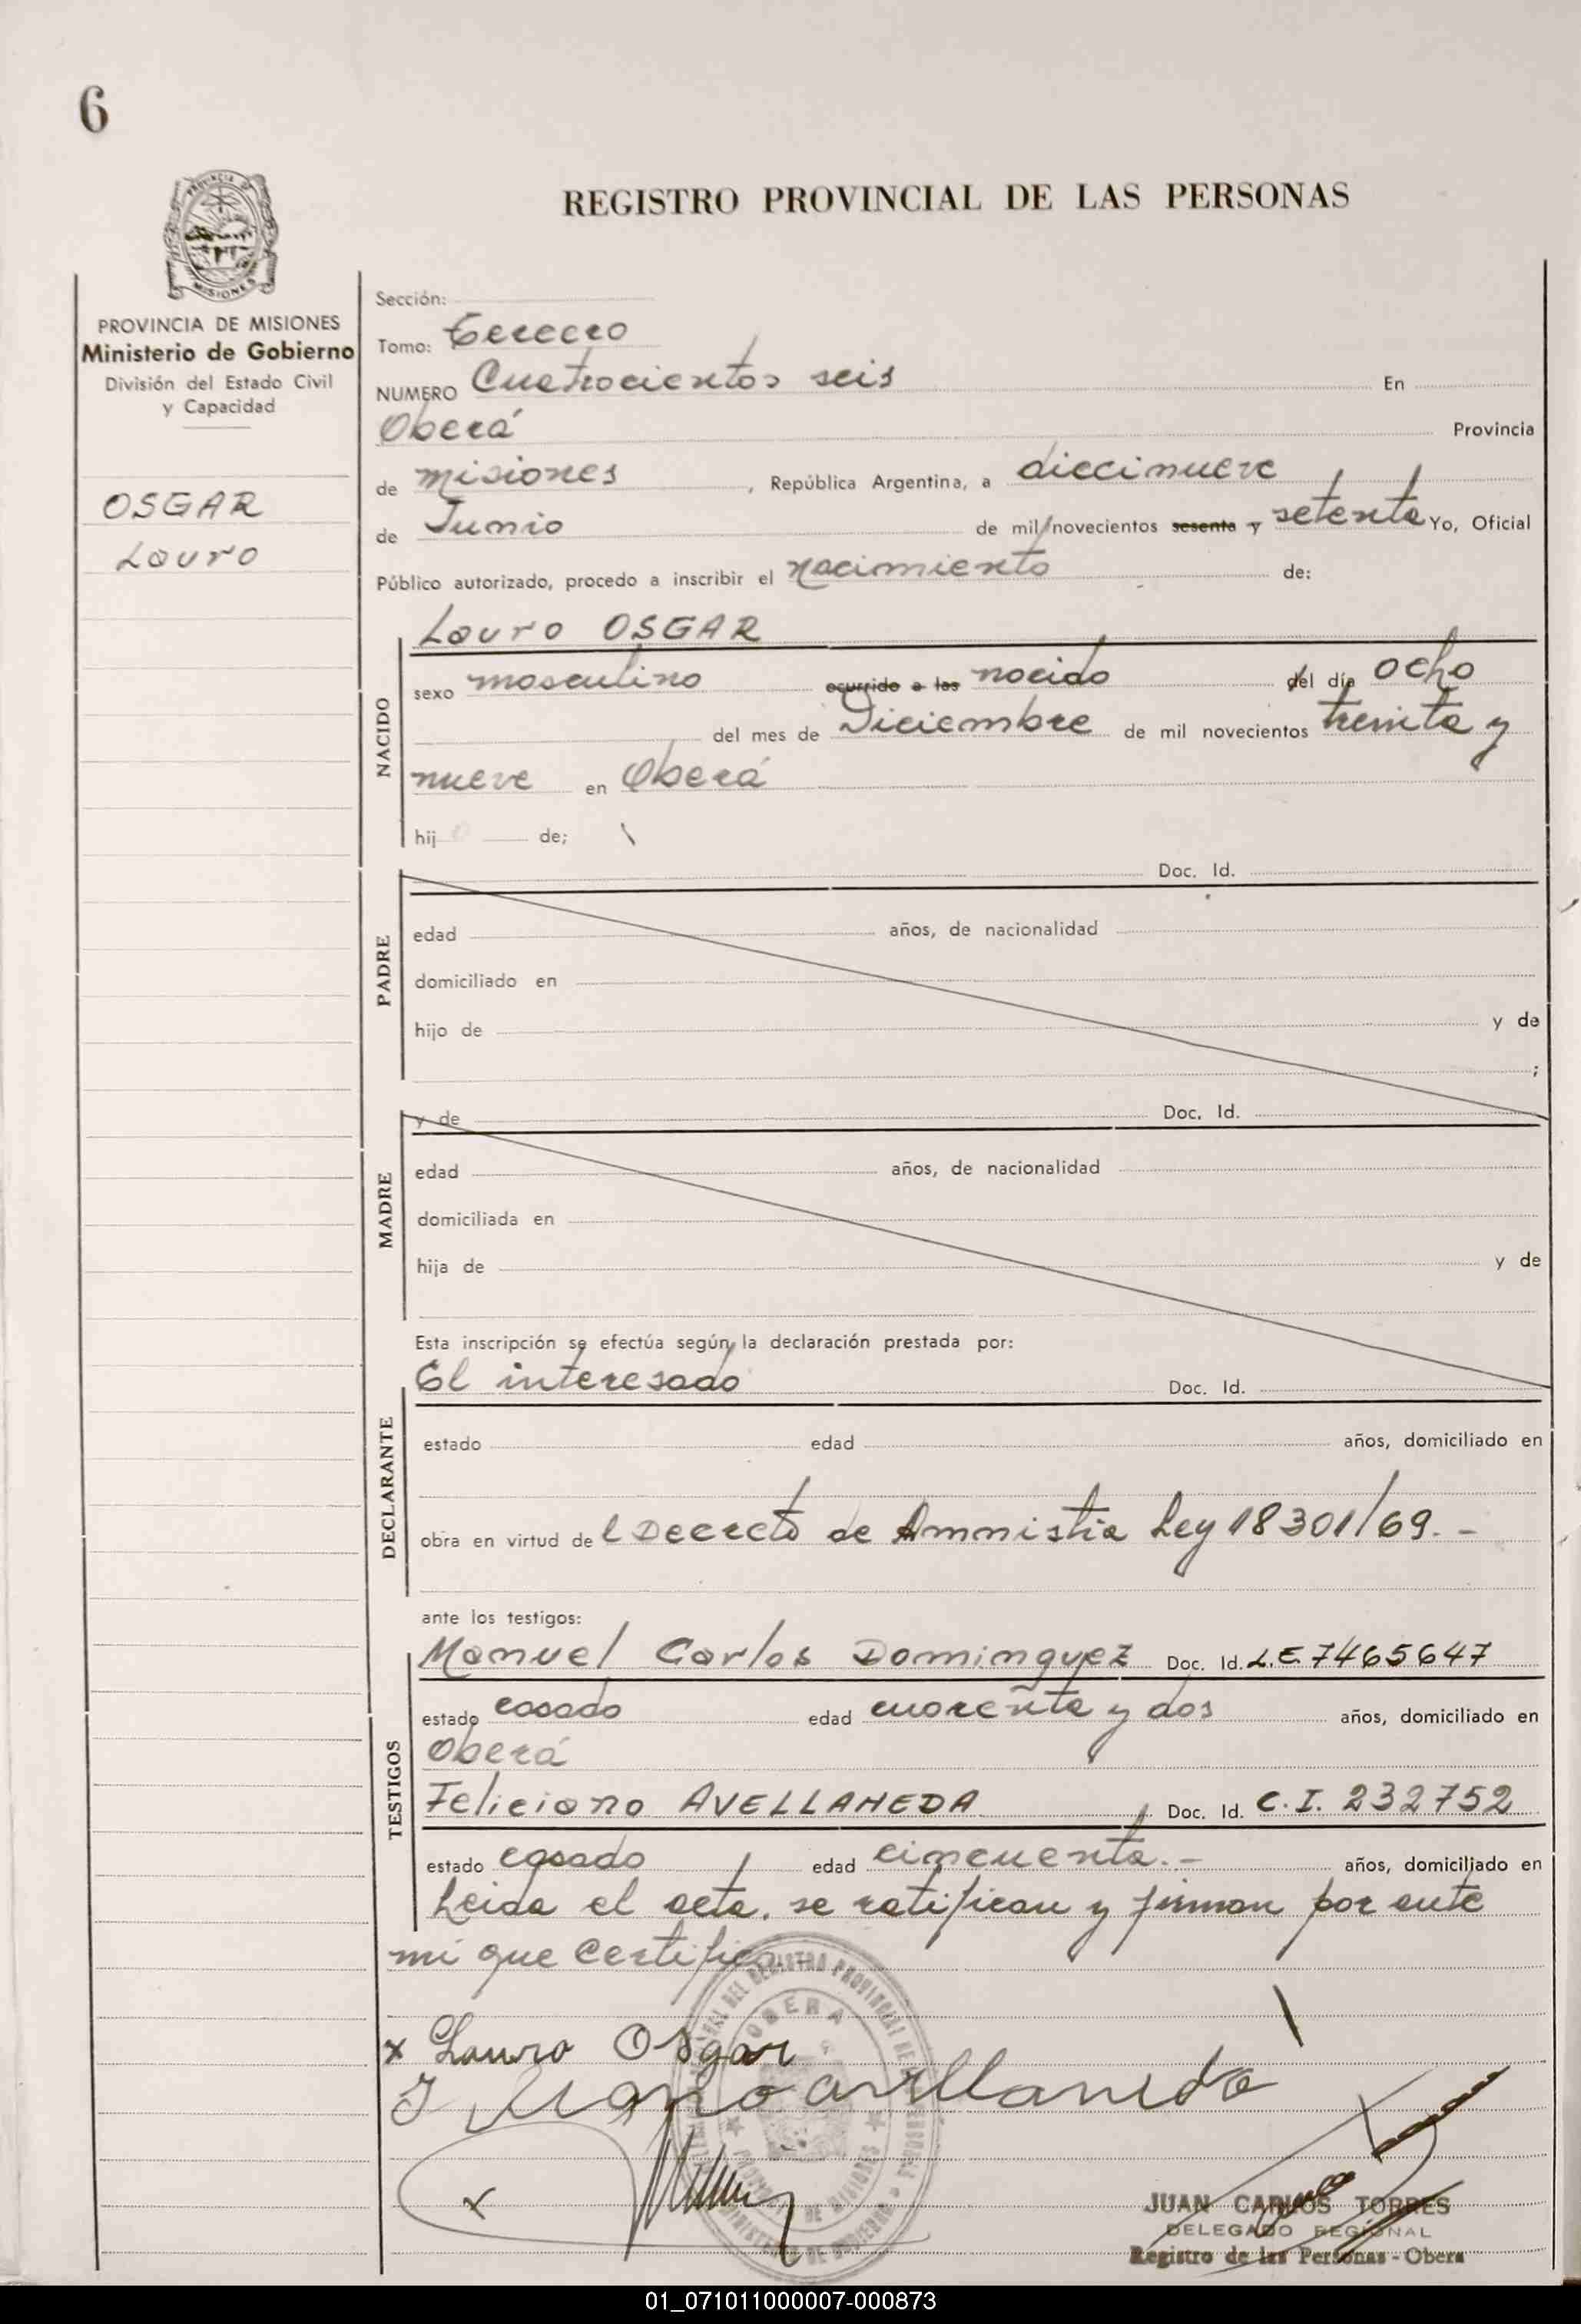 6
REGISTRO PROVINCIAL DE LAS PERSONAS
PROVINCIA DE MISIONES
MISIONES
PROVINCIA DE MISIONES
Ministerio de Gobierno
División del Estado Civil
y Capacidad
OSGAR
Lauro
Sección:
Tomo: Tercero
NUMERO Cuatrocientos seis En
Oberá Provincia
de Misiones, República Argentina, a diecinueve
de Junio de mil novecientos sesenta y setenta Yo, Oficial
Público autorizado, procedo a inscribir el nacimiento de:
NACIDO
Lauro OSGAR
sexo masculino ocurrido a las nacido del día ocho
del mes de Diciembre de mil novecientos treinta y
nueve en Oberá
hijo de;
PADRE
Doc. Id.
edad años, de nacionalidad
domiciliado en
hijo de y de
;
MADRE
y de Doc. Id.
edad años, de nacionalidad
domiciliada en
hija de y de
Esta inscripción se efectúa según la declaración prestada por:
DECLARANTE
El interesado Doc. Id.
estado edad años, domiciliado en
obra en virtud de l Decreto de Amnistia Ley 18301/69.-
ante los testigos:
TESTIGOS
Manuel Carlos Dominguez Doc. Id. L.E. 7465647
estado casado edad cuarenta y dos años, domiciliado en
Oberá
Feliciano AVELLANEDA Doc. Id. C.I. 232752
estado casado edad cincuenta.- años, domiciliado en
Leida el acta, se ratifican y firman por ante
mi que certifico
x Lauro Osgar
avellaneda
x
OBERA
PROVINCIA DE MISIONES
MINISTERIO DE GOBIERNO
JUAN CARLOS TORRES
DELEGADO REGIONAL
Registro de las Personas - Obera
01_071011000007-000873